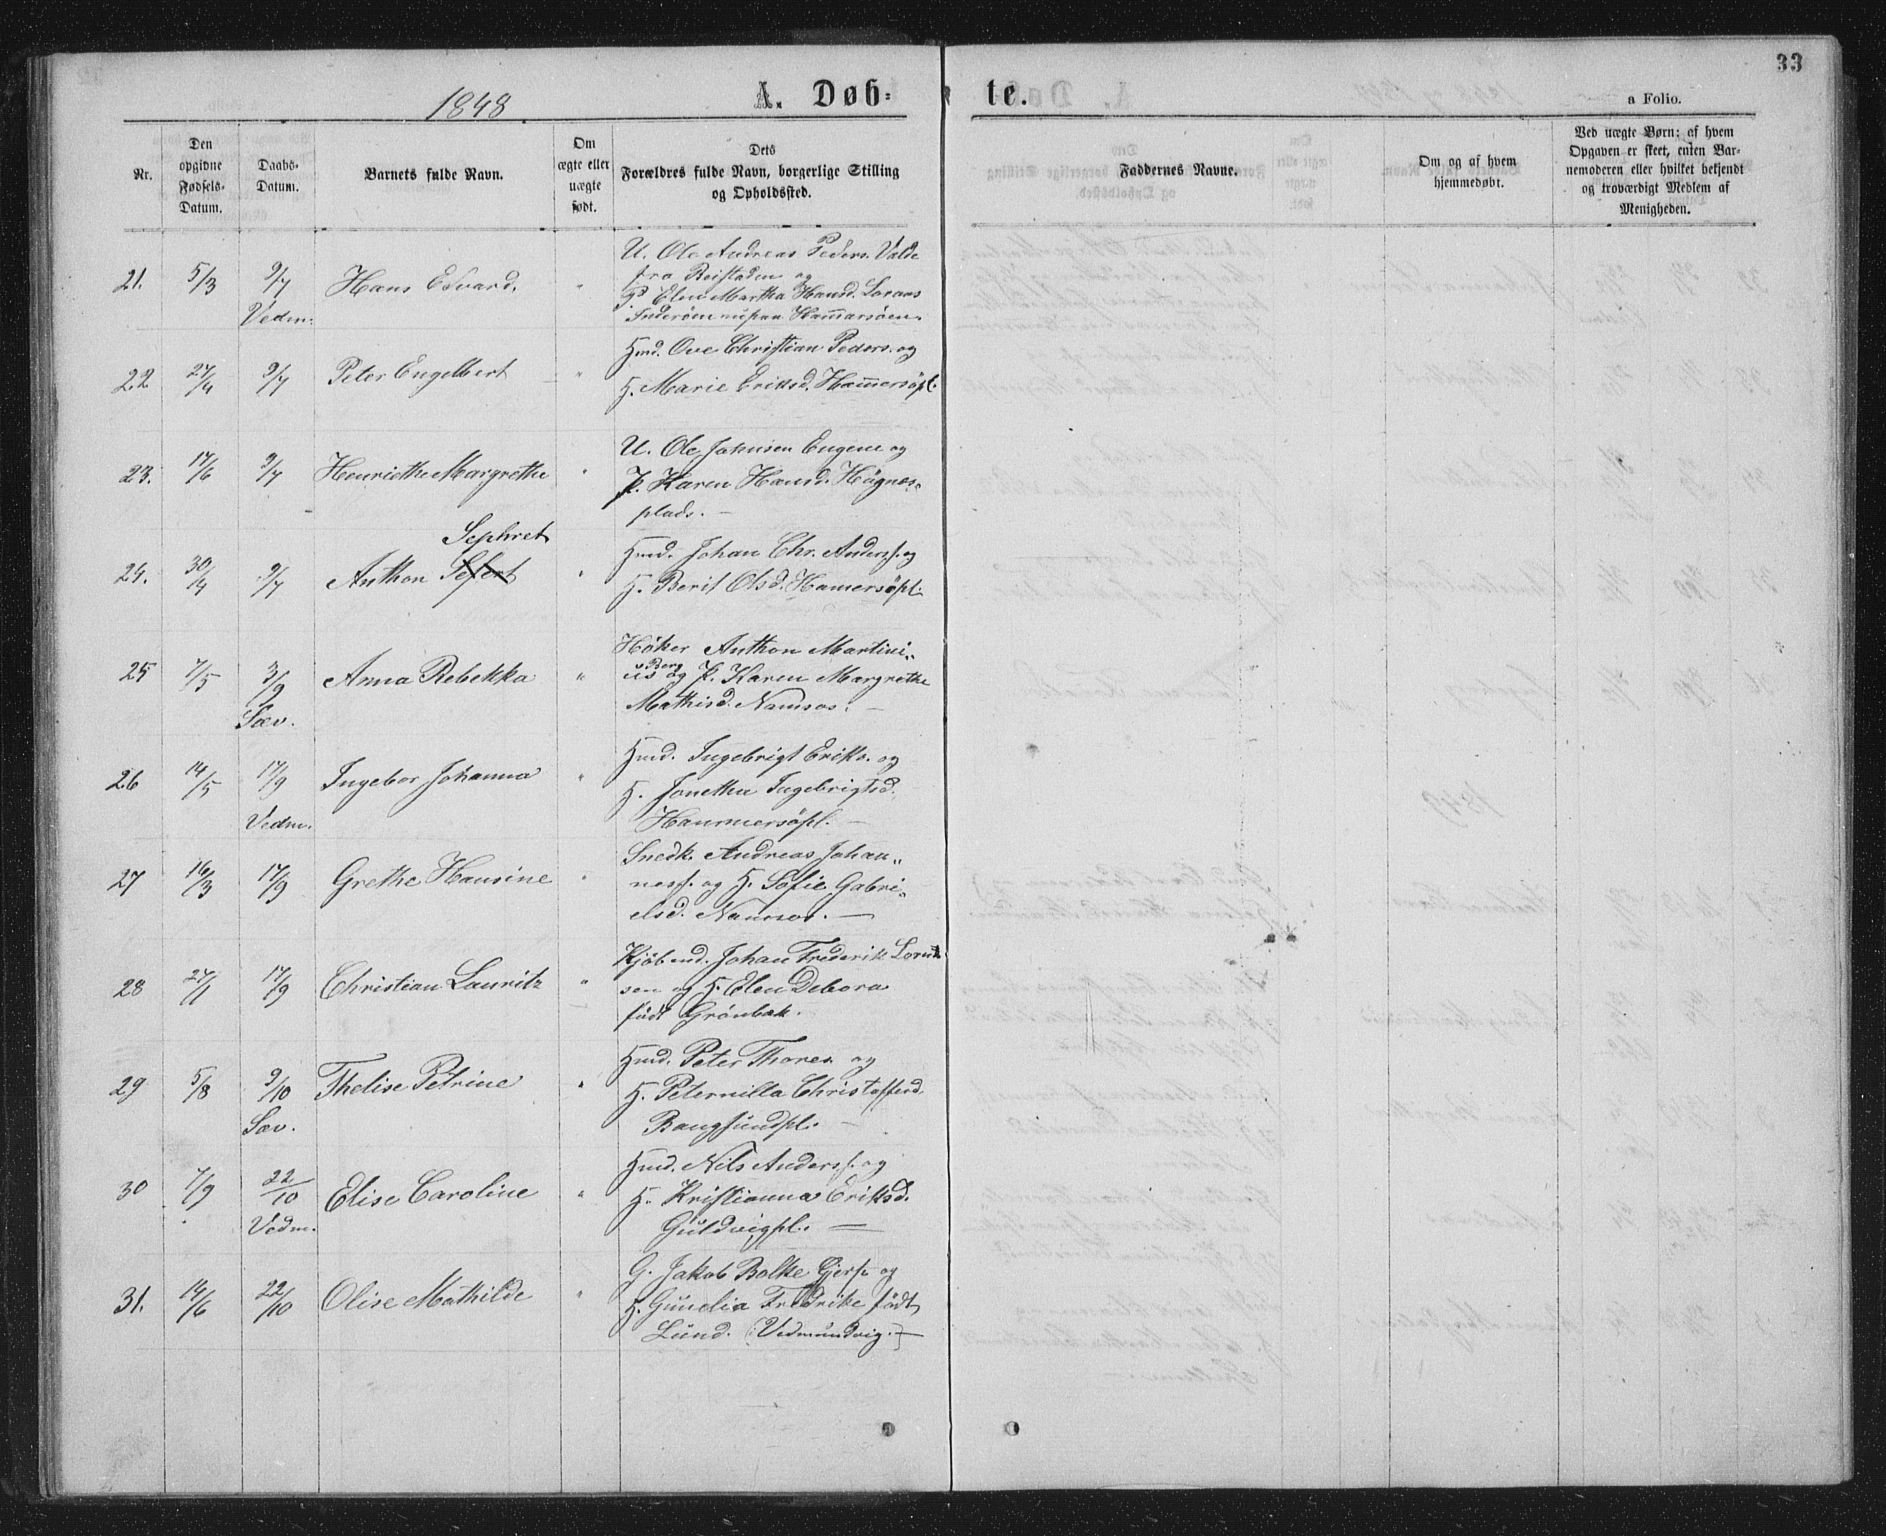 33
1848
A. Døb-te.
a Folio.
Nr.
Den opgidne Fødsels-Datum.
Daabs-Datum.
Barnets fulde Navn.
Om ægte eller uægte født.
Dets Forældres fulde Navn, borgerlige Stilling og Opholdssted.
Faddernes Navne.
Om og af hvem hjemmedøbt.
Ved uægte Børn: af hvem Opgaven er skeet, enten Barnemoderen eller hvilket bekjendt og troværdigt Medlem af Menigheden.
21. 5/3 9/7 Vedm. Hans Edvard. " U. Ole Andreas Peders. Valde
fra Reistaden og
P Elen Martha Hansd.
Inderøen
22 27/4 9/7 Peter Engelbert " Hmd. Ove Christian Peders. og
H. Marie Eriksd. Hammersøpl.
23. 17/6 9/7 Henriethe Margrethe " U. Ole Johnsen Eugene og
P. Karen Hansd. Högnes-
plads. —
Sephret
24. 30/4 9/7 Anthon Sefert " Hmd. Johan Chr. Anders. og
H. Berit Olsd. Hamersøpl.
25 7/5 3/9 Sæv. Anna Rebekka " Höker Anthon Martini„
us Berg og P. Karen Margrethe
Mathisd. Namsos. —
26 14/5 17/9 Vedm. Ingebor Johanna " Hmd. Ingebrigt Eriks. og
H. Jonetha Ingebrigtsd.
Hammersøpl. —
27 16/3 17/9 Grethe Hansine " Snedk. Andreas Johan„
ness. og H. Sofie Gabri„
elsd. Namsos. —
28 27/1 17/9 Christian Lauritz " Kjöbmd. Johan Frederik
sen og H. Elen Debora
født Grönbak.
29 5/8 9/10 Sæv. Thelise Petrine " Hmd. Peter Thores. og
H. Peternilla Christoffersd.
Bangsundpl. —
30 7/9 22/10 Vedm. Elise Caroline " Hmd. Nils Anders. og
H. Kristianna Eriksd.
Guldvigpl. —
31. 14/6 22/10 Olise Mathilde " G. Jakob Bolke Gjers. og
H. Gunelia Fredrike født
Lund. (Vedmundvig.) —